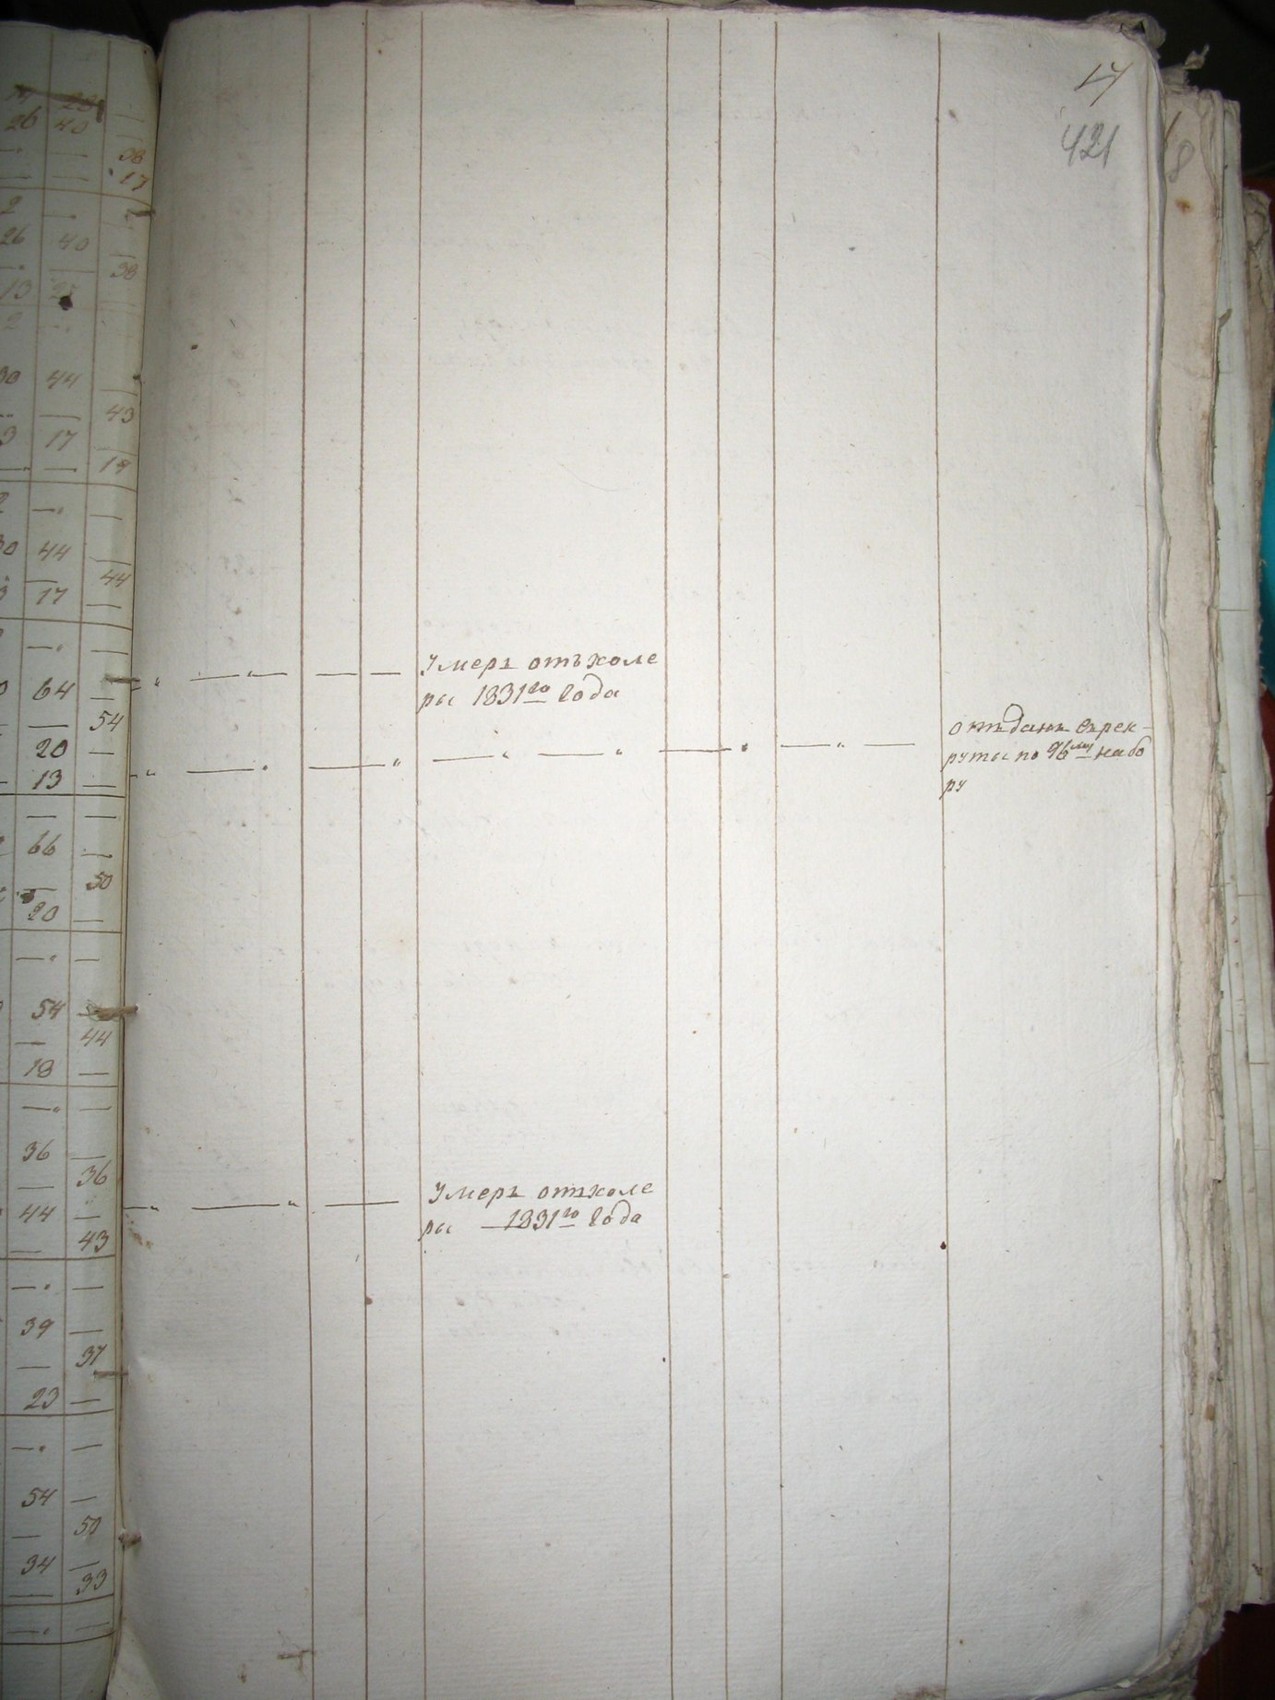 17
421
18
26 40
38
17
2
26 40
38
13
2
30 44
43
3 17
19
2
30 44
44
3 17
64
54
20
13
66
50
20
54
44
18
36
36
44
43
39
37
23
54
50
34
33
Умеръ отъ холе
ры 1831го года
отъданъ въ рек-
руты по 96му набо
ру
Умеръ отъ холе
ры 1831го года